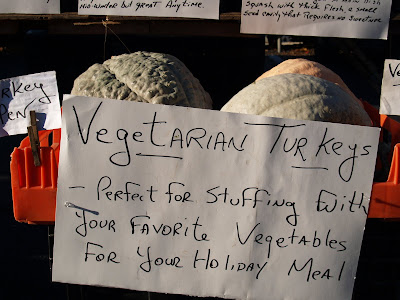 no winter but great Anytime.
Squash with thick Flesh, a small
seed cavity that Requires no Sweetener
Turkey
Pen
Vegetarian Turkeys
- Perfect for Stuffing With
Your Favorite Vegetables
For Your Holiday Meal